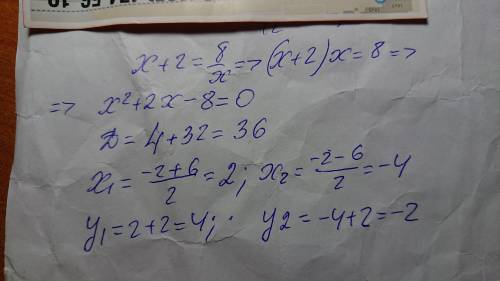 x+2=8/x=>(x+2)x=8=>
=> x²+2x-8=0
D=4+32=36
x₁=(-2+6)/2=2; x₂=(-2-6)/2=-4
y₁=2+2=4; y₂=-4+2=-2